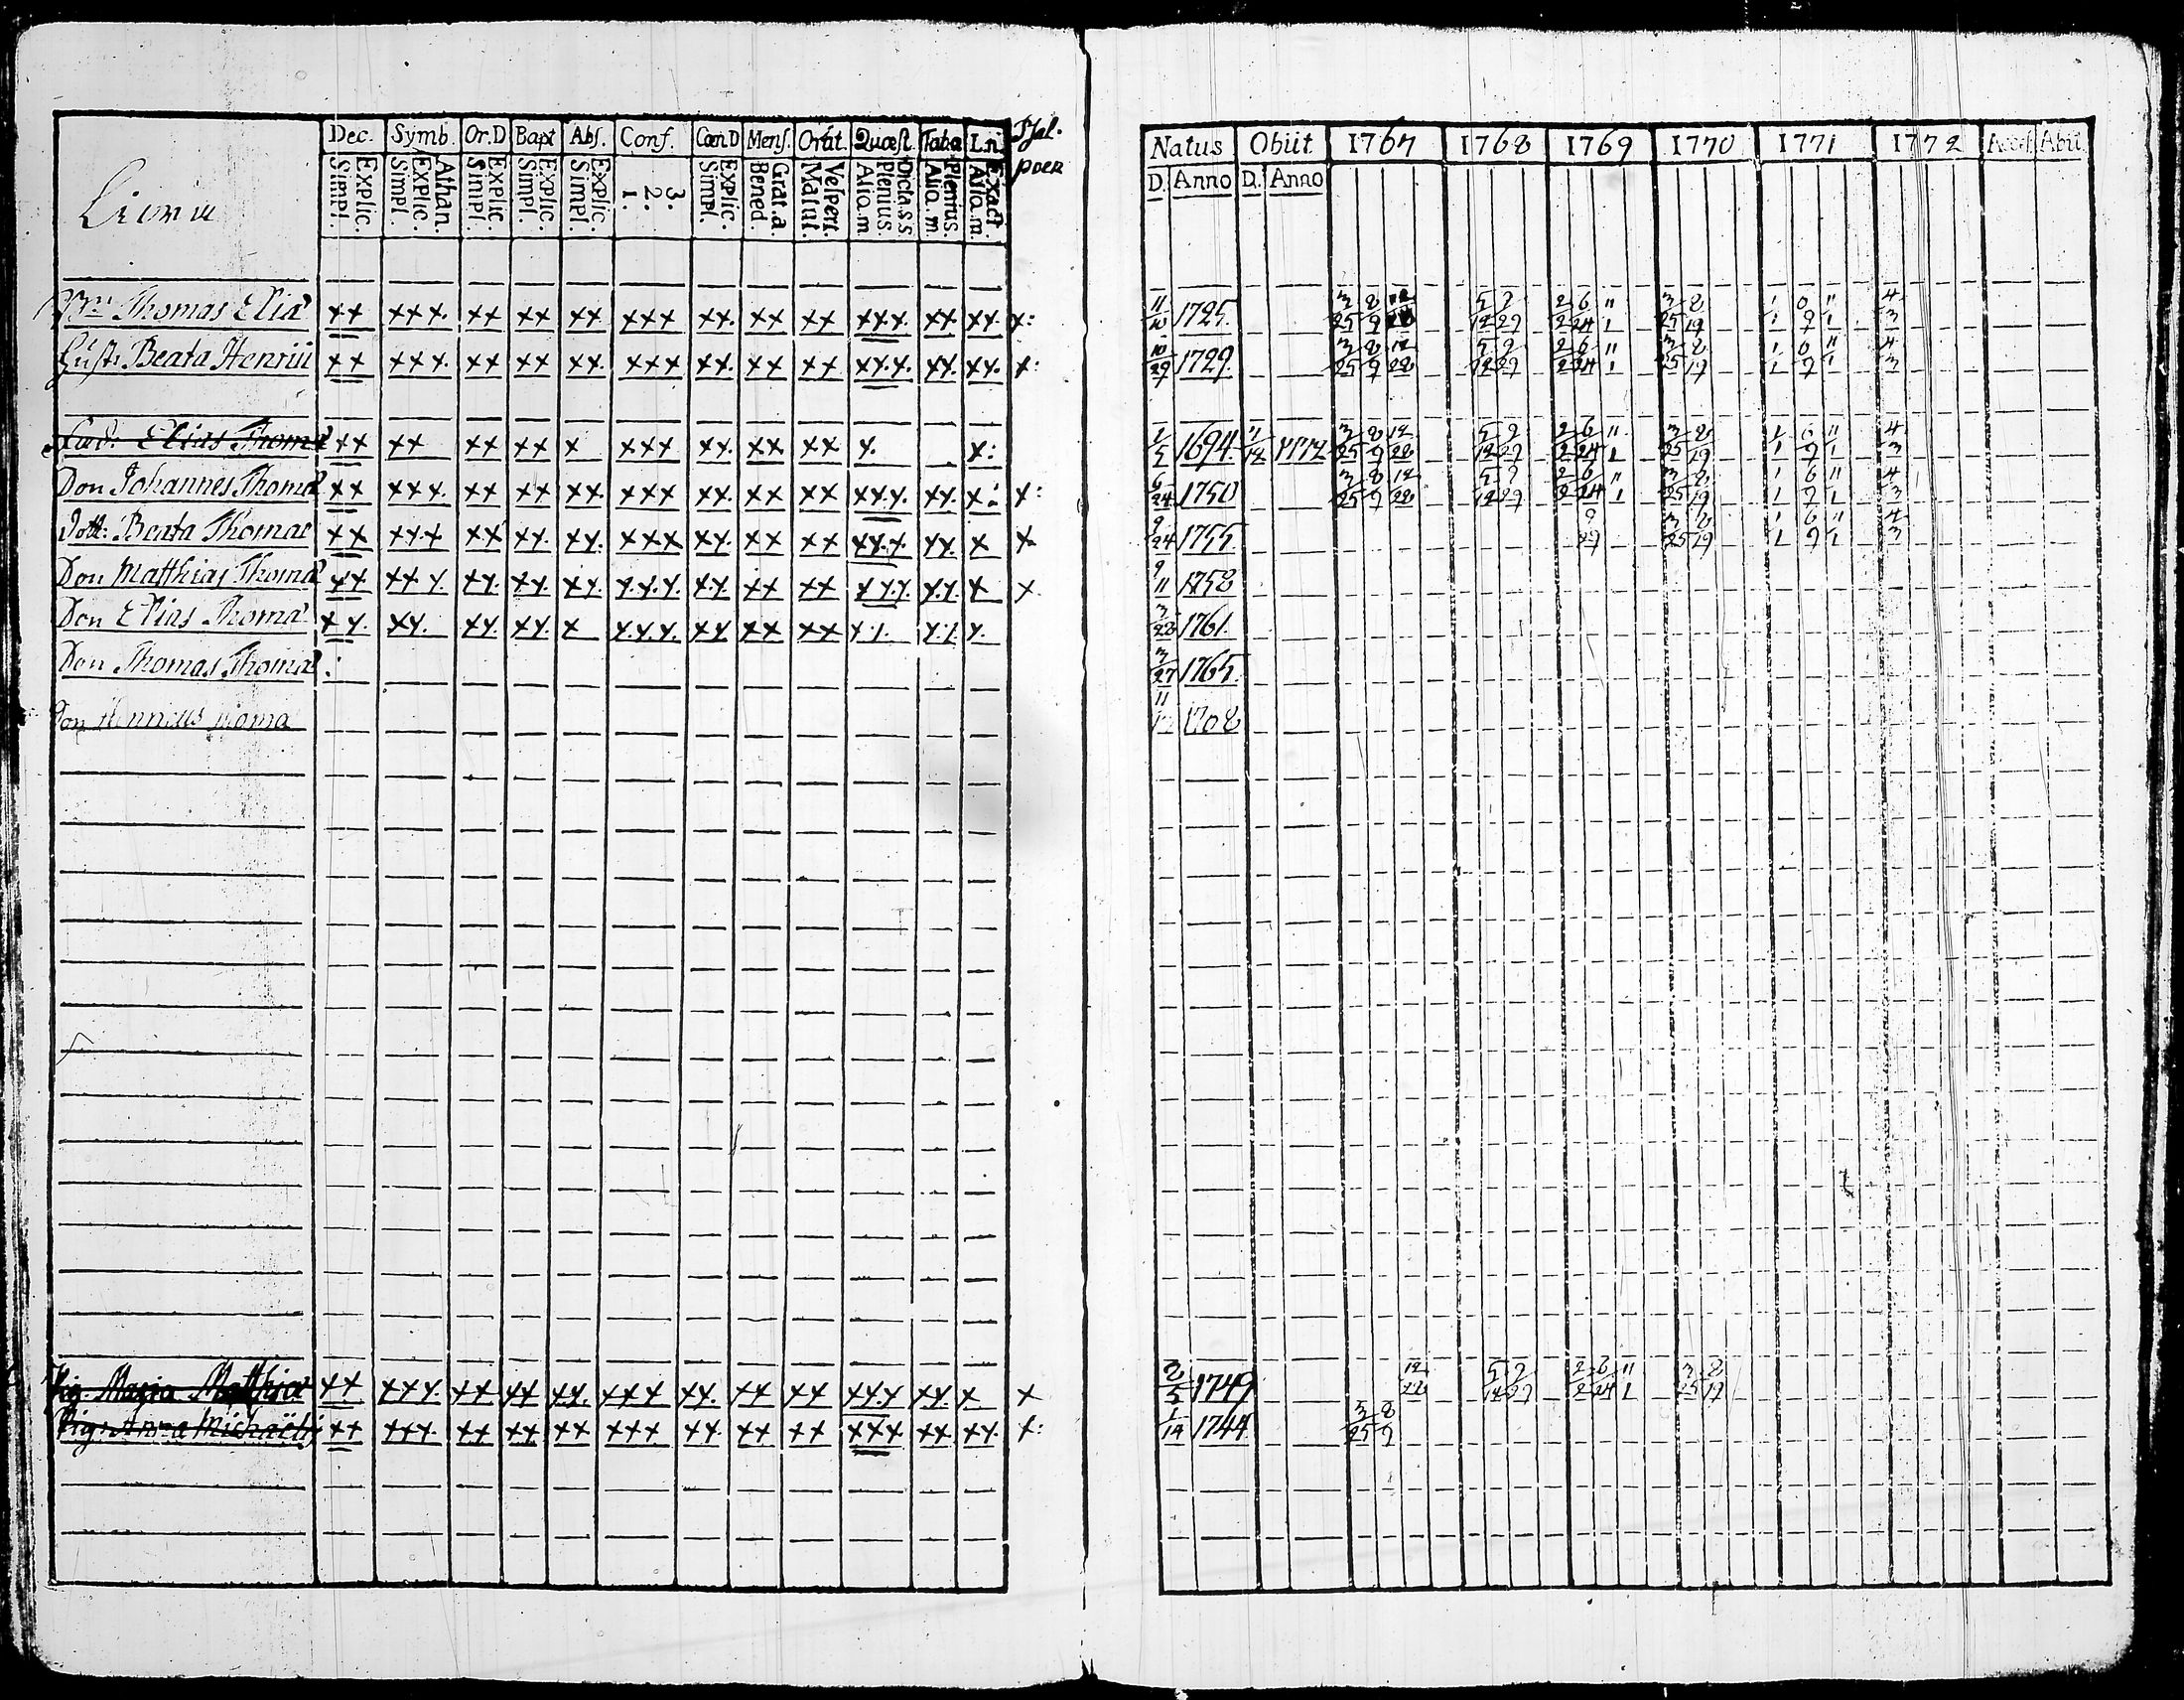 Dec. Symb. Or.D Bapt Abs. Conf. CœnD Mens. Orat. Quæst. Taba L.n. Psal. pœn
Simpl. Explic. Simpl. Explic. Athan. Simpl. Explic. Simpl. Explic. Simpl. Explic. 1. 2. 3. Simpl. Explic. Bened. Grat.a. Matut. Vespert. Alio.m Plenius. Dicta.s.s. Alio.m. Plenius. Alio.m. Exact.
Natus Obiit 1767 1768 1769 1770 1771 1772 Access Abiit
D. Anno D. Anno
Thomas Eliæ xx xxx xx xx xx xxx xx. xx xx xxx. xx xx. x: 11/10 1725. 3/25 8/9 5/12 2/27 2/2 6/24 11/1 3/25 8/19 1/1 6/9 11/1 4/3
Hust: Beata Henrici xx xxx. xx xx xx. xxx xx. xx xx xx.x. xx. xx. x: 10/29 1729. 3/25 8/9 12/28 5/12 9/27 2/2 6/24 11/1 3/25 8/19 1/1 6/9 11/1 4/3
Elias Thomæ xx xx xx xx x xxx xx. xx xx x. x: 1/5 1694 3/25 8/9 12/28 5/12 9/27 2/2 6/24 11/1 3/25 8/19 1/1 6/9 11/1 4/3
Don Johannes Thomæ xx xxx. xx xx xx. xxx xx. xx xx xx.x. xx. x: x: 6/24 1750 3/25 8/9 12/28 5/12 9/27 2/2 6/24 11/1 3/25 8/19 1/1 6/9 11/1 4/3
Dott: Beata Thomæ xx xxx xx xx. xx. xxx xx. xx xx xx.x. xx. x x 9/24 1755. 9/29 3/25 8/19 1/1 6/9 11/1 4/3
Don Matthias Thomæ xx. xxx. xx. xx. xx. x.x.x. x.x. xx xx xx.x. x.x. x x 9/11 1758
Don Elias Thomæ xx. xx. xx. xx. x x.x.x. xx xx xx x.x. x.x. x. 3/28 1761.
Don Thomas Thomæ 3/27 1765.
Don Henricus Thomæ 11
Pig. Maria Matthiæ xx xxx. xx xx xx. xxx xx. xx xx xx.x xx. x x 8/5 1749 12/28 5/12 9/27 2/2 6/24 11/1 3/25 8/19
Pig: Anna Michaëlis xx xxx. xx xx xx xxx xx. xx xx xxx xx xx. x: 1/14 1744. 3/25 8/9